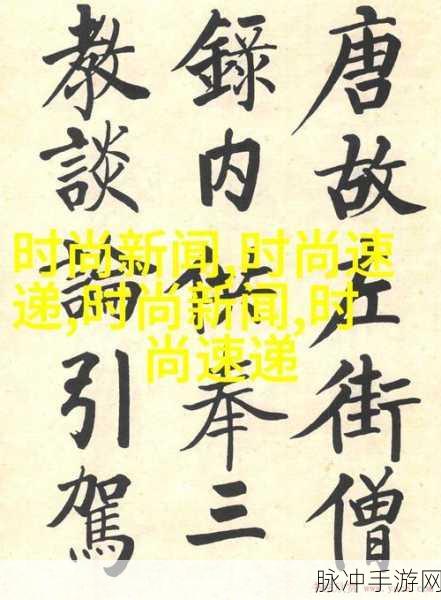 唐故左街僧
録内供奉三
教談論引駕
时尚新闻,时尚速
递,时尚新闻,时
尚速递
脉冲手游网